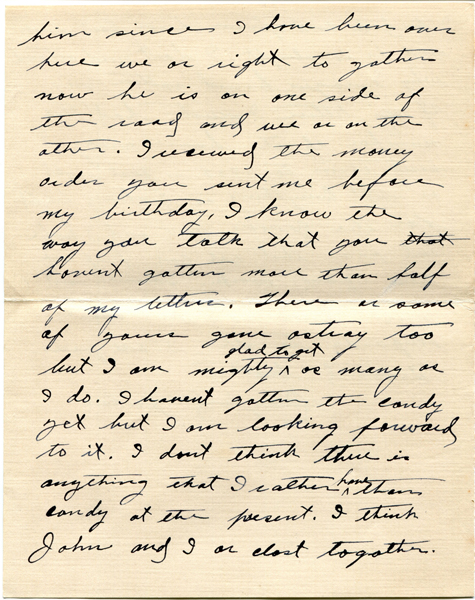 him since I have been over
here we or right to gather
now he is on one side of
the road and we or on the
other. I received the money
order you sent me before
my birthday, I know the
way you talk that you that
havent gotten more than half
of my letters. There or some
of yours gone astray too
but I am mighty glad to get as many as
I do. I havent gotten the candy
yet but I am looking forward
to it. I dont think there is
anything that I rather have than
candy at the present. I think
John and I or clost togather.